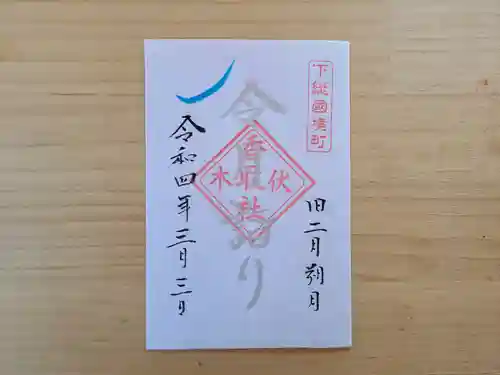 下総國境町
旧二月朔月
香取社
伏
木
令和四年三月三日